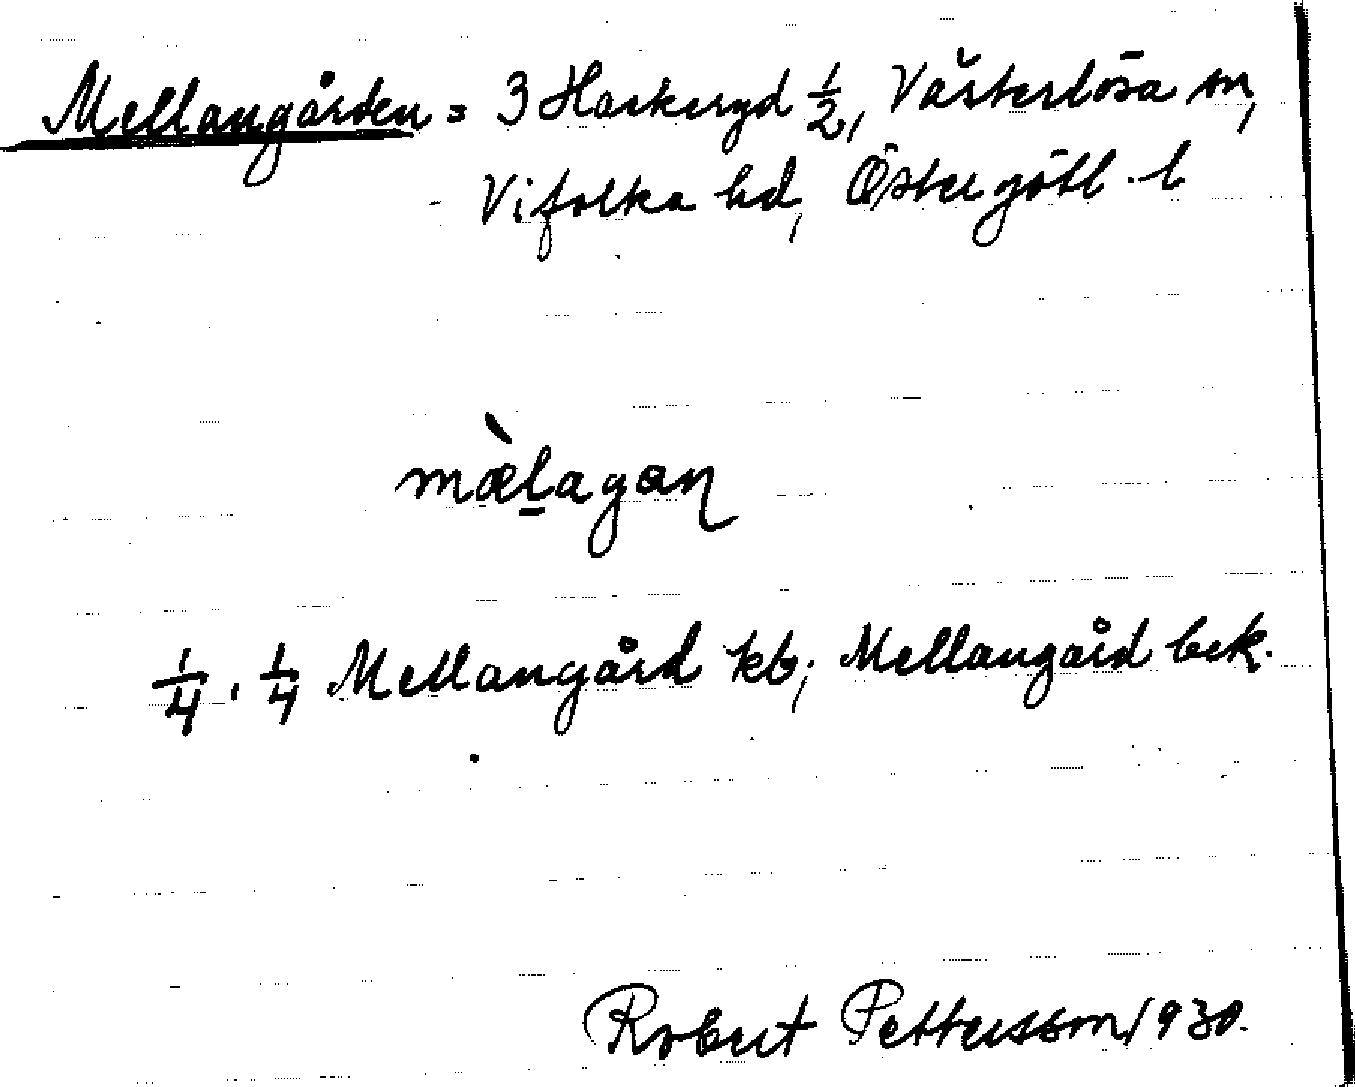 Mellangården = 3 Harkeryd ½, Västerlösa sn,
Vifolka hd, Östergötl. l
mæ̀l̠agaɳ
¼. ¼ Mellangård kb; Mellangård bek.
Robert Pettersson 1930.